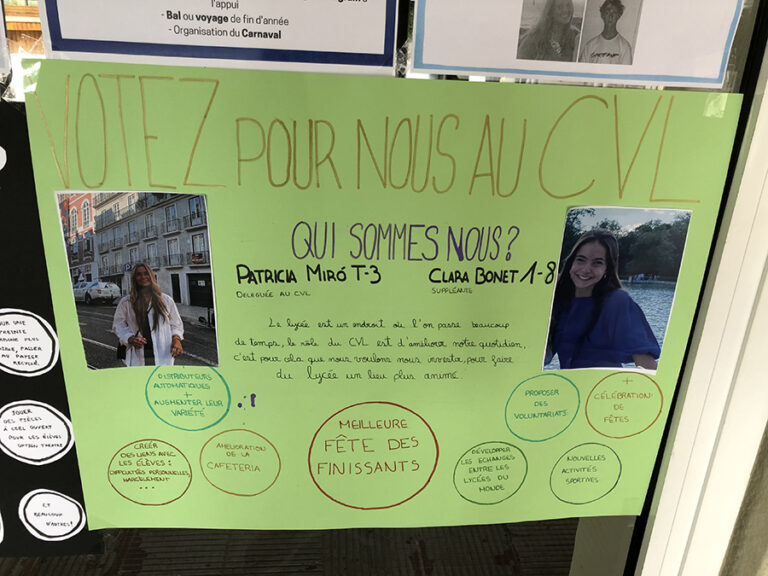 l'appui
- Bal ou voyage de fin d'année
- Organisation du Carnaval
GAETAN
VOTEZ POUR NOUS AU CVL
QUI SOMMES NOUS ?
PATRICIA MIRÓ T-3
DELEGUÉE AU CVL
CLARA BONET 1-8
SUPPLÉANTE
Le lycée est un endroit où l'on passe beaucoup
de temps, le rôle du CVL est d'améliorer notre quotidien,
c'est pour cela que nous voulons nous investir, pour faire
du lycée un lieu plus animé.
DISTRIBUTEURS
AUTOMATIQUES
+
AUGMENTER LEUR
VARIÉTÉ
PROPOSER
DES
VOLONTARIATS
+
CÉLÉBRATION
DE
FÊTES
CRÉER
DES LIENS AVEC
LES ÉLÈVES :
DIFFICULTÉS PERSONNELLES
HARCÈLEMENT
...
AMELIORATION
DE LA
CAFETERIA
MEILLEURE
FÊTE DES
FINISSANTS
DÉVELOPPER
LES ECHANGES
ENTRE LES
LYCÉES DU
MONDE
NOUVELLES
ACTIVITÉS
SPORTIVES
PLUS
PAPIER
RECYCLÉ.
JOUER
DES PIÈCES
À CIEL OUVERT
POUR LES ÉLÈVES
OPTION THÉATRE
ET
BEAUCOUP
D'AUTRES!